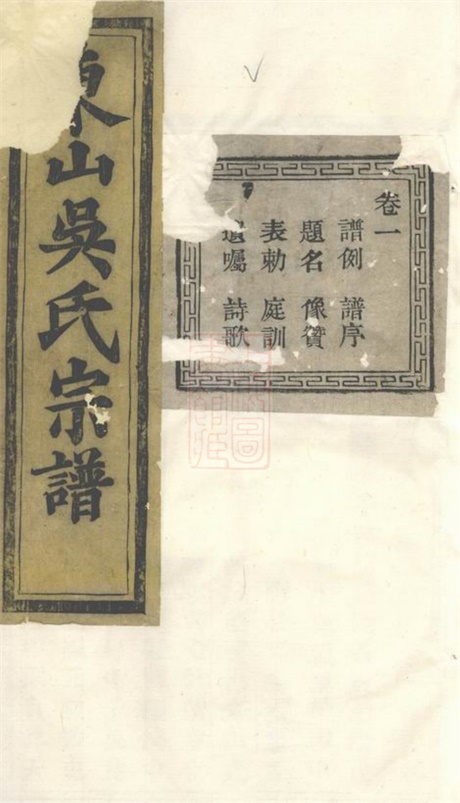 東山吳氏宗譜
卷一
譜例 譜序
題名 像贊
表勅 庭訓
遺囑 詩歌